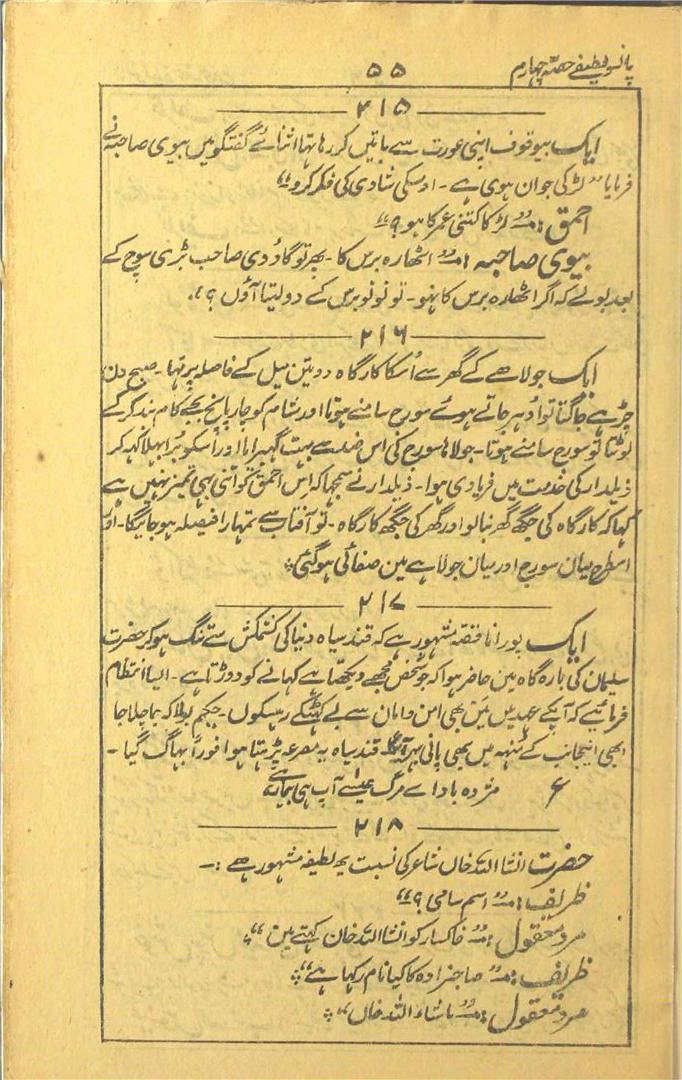 پانسو لطیفے حصۂ چہارم
۵۵
۲۱۵
ایک بیوقوف اپنی عورت سے باتیں کر رہا تہا اثنائے گفتگو میں بیوی صاحبہ نے
فرمایا ”لڑکی جوان ہوی ہے ۔ اوسکی شادی کی فکر کرو“
احمق :۔ ”لڑکا کتنی عمر کا ہو؟“
بیوی صاحبہ :۔ ”اٹھارہ برس کا ۔ پھر تو گاؤدی صاحب بڑی سوچ کے
بعد بولے کہ اگر اٹھارہ برس کا نہو ۔ تو نو نو برس کے دو لیتا آؤں ؟“
۲۱۶
ایک جولاھے کے گھر سے اُسکا کارگاہ دو تین میل کے فاصلہ پر تہا ۔ صبح دن
چڑہے جاگتا تو اُدہر جاتے ہوئے سورج سامنے ہوتا اور شام کو چار پانچ بجے کام بند کر کے
لوٹتا تو سورج سامنے ہوتا ۔ جولاہا سورج کی اس ضد سے بہت گہبرایا اور اُسکو بُرا بہلا کہہ کر
ذیلدار کی خدمت میں فریادی ہوا ۔ ذیلدار نے سمجہا کہ اِس احمق کو اتنی بہی تمیز نہیں ہے
کہا کہ کارگاہ کی جگھ گھر بنالو اور گھر کی جگھ کارگاہ ۔ تو آفتاب سے تمہارا فیصلہ ہو جائیگا ۔ اور
اسطرح میان سورج اور میان جولاہے مین صفائی ہوگئی
۲۱۷
ایک پورانا قصّہ مشہور ہے کہ قند سیاہ دنیا کی کشمکش سے تنگ ہو کر حضرت
سلیمان کی بارہ گاہ مین حاضر ہوا کہ جو شخص مجھے دیکھتا ہے کہانے کو دوڑتا ہے ۔ ایسا انتظام
فرمائیے کہ آپکے عہد میں مَیں بھی امن و امان سے بے کھٹکے رہ سکوں ۔ حکیم بولا کہ بہا چلا جا
ابھی اینجانب کے مُنہہ میں بھی پانی بہر آیا قند سیاہ یہ مصرعہ پڑہتا ہوا فوراً بہاگ گیا ۔
ع مژدہ باد اے مرگ عیسےٰ آپ ہی بیمار ہے
۲۱۸
حضرت انشا اللہ خاں شاعر کی نسبت یھ لطیفہ مشہور ھے :۔
ظریف :۔ ”اسم سامی ؟“
مرد معقول :۔ ”خاکسار کو انشا اللہ خان کہتے ہین“
ظریف :۔ ”صاحبزادہ کا کیا نام رکہا ہے“
مرد معقول :۔ ”ماشاء اللہ خاں“